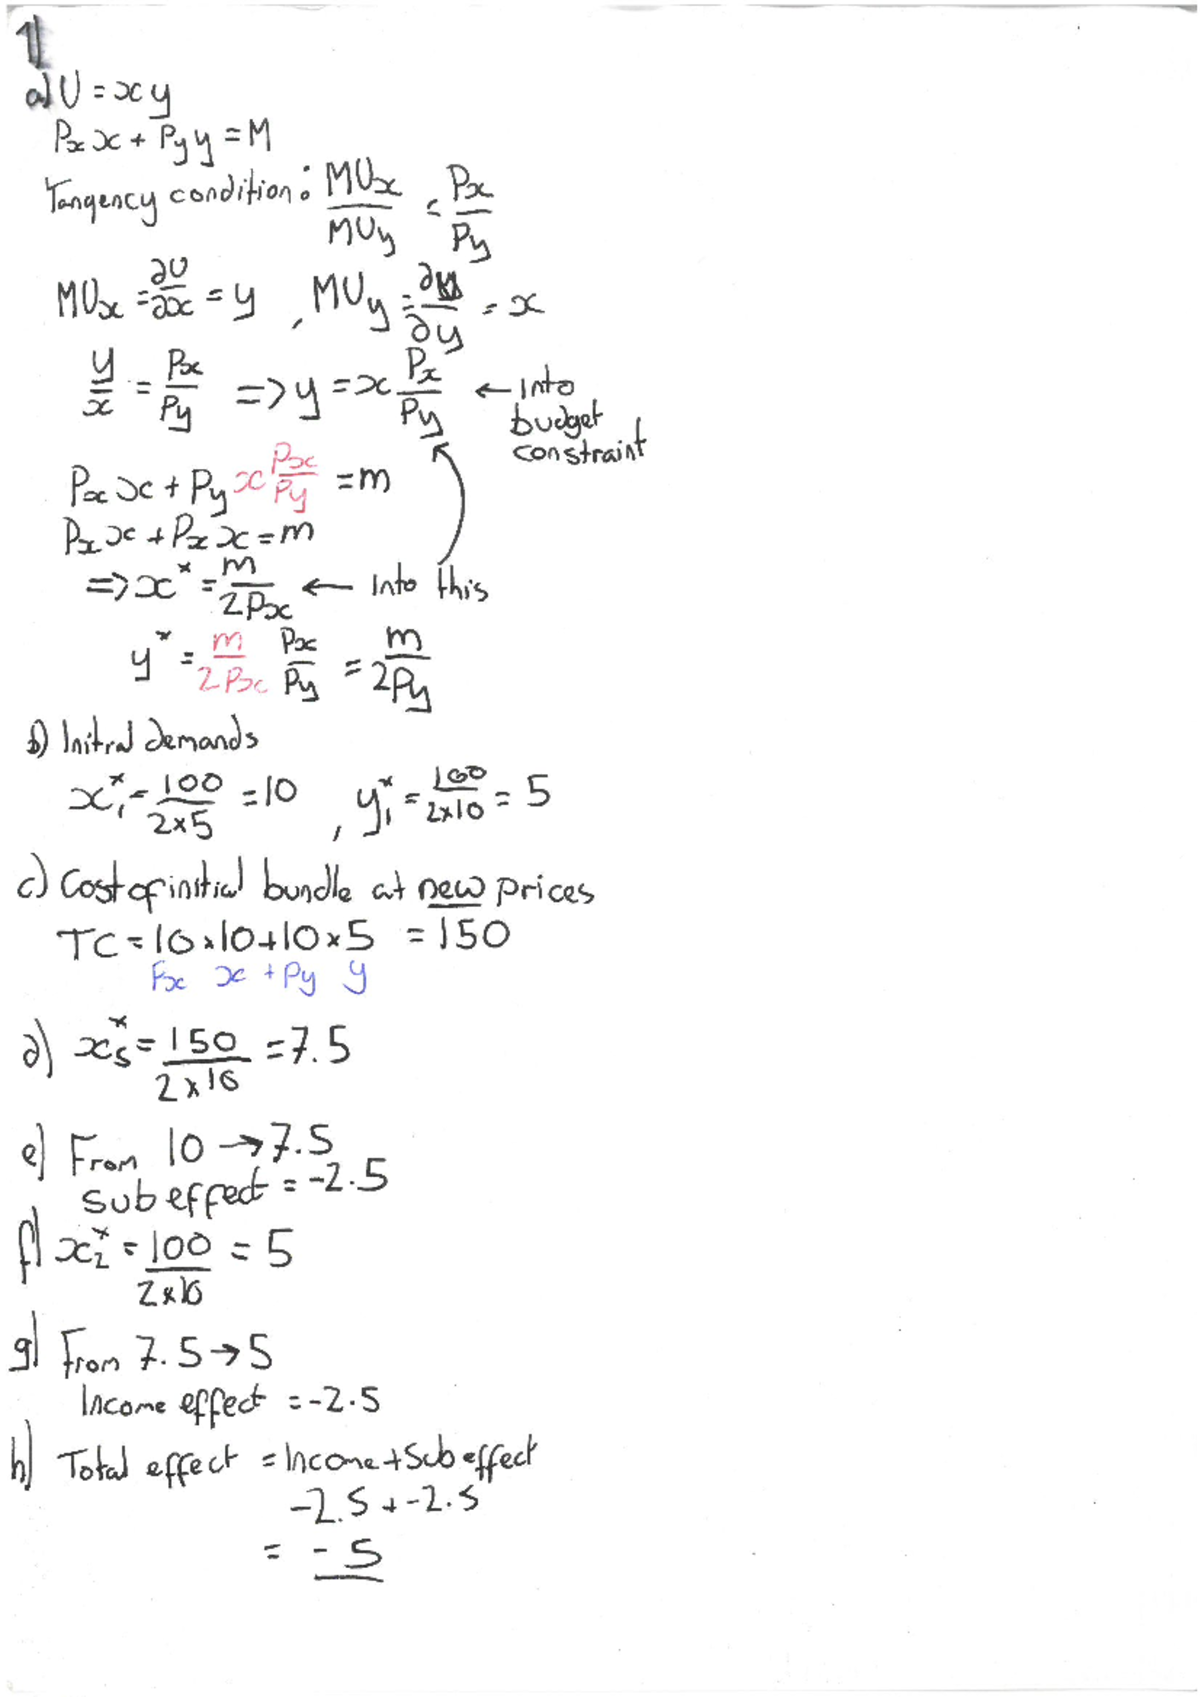 1)
a) U = xy
Px x + Py y = M
Tangency condition: MUx/MUy = Px/Py
MUx = ∂U/∂x = y , MUy = ∂U/∂y = x
y/x = Px/Py => y = x Px/Py ← Into budget constraint
Px x + Py x Px/Py = m
Px x + Px x = m
=> x* = m/2Px ← Into this
y* = m/2Px Px/Py = m/2Py
b) Initial demands
x₁* = 100/2×5 = 10 , y₁* = 100/2×10 = 5
c) Cost of initial bundle at new prices
TC = 10×10+10×5 = 150
Px x + Py y
d) xs* = 150/2×10 = 7.5
e) From 10 → 7.5
Sub effect = -2.5
f) x₂* = 100/2×10 = 5
g) From 7.5 → 5
Income effect = -2.5
h) Total effect = Income + Sub effect
-2.5 + -2.5
= -5